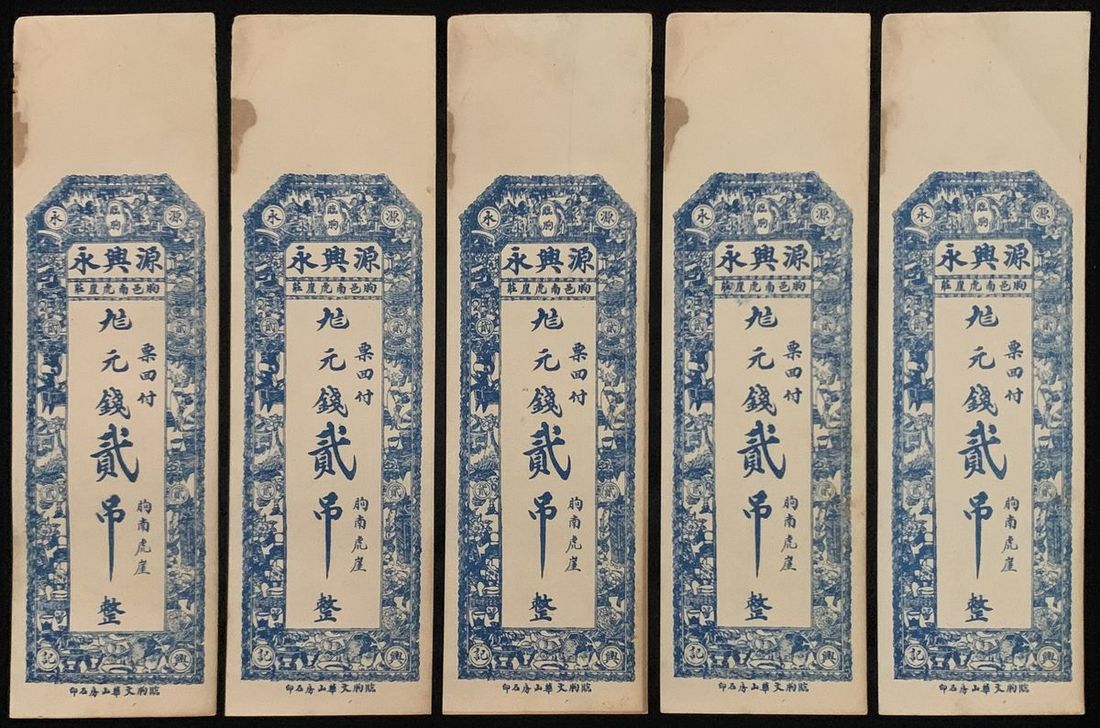 源 臨朐 永
源興永
朐邑南虎崖莊
貳 貳
票四付
朐南虎崖
元錢貳吊整
貳 貳
興 記
臨朐文華山房石印
源 臨朐 永
源興永
朐邑南虎崖莊
貳 貳
票四付
朐南虎崖
元錢貳吊整
貳 貳
興 記
臨朐文華山房石印
源 臨朐 永
源興永
朐邑南虎崖莊
貳 貳
票四付
朐南虎崖
元錢貳吊整
貳 貳
興 記
臨朐文華山房石印
源 臨朐 永
源興永
朐邑南虎崖莊
貳 貳
票四付
朐南虎崖
元錢貳吊整
貳 貳
興 記
臨朐文華山房石印
源 臨朐 永
源興永
朐邑南虎崖莊
貳 貳
票四付
朐南虎崖
元錢貳吊整
貳 貳
興 記
臨朐文華山房石印